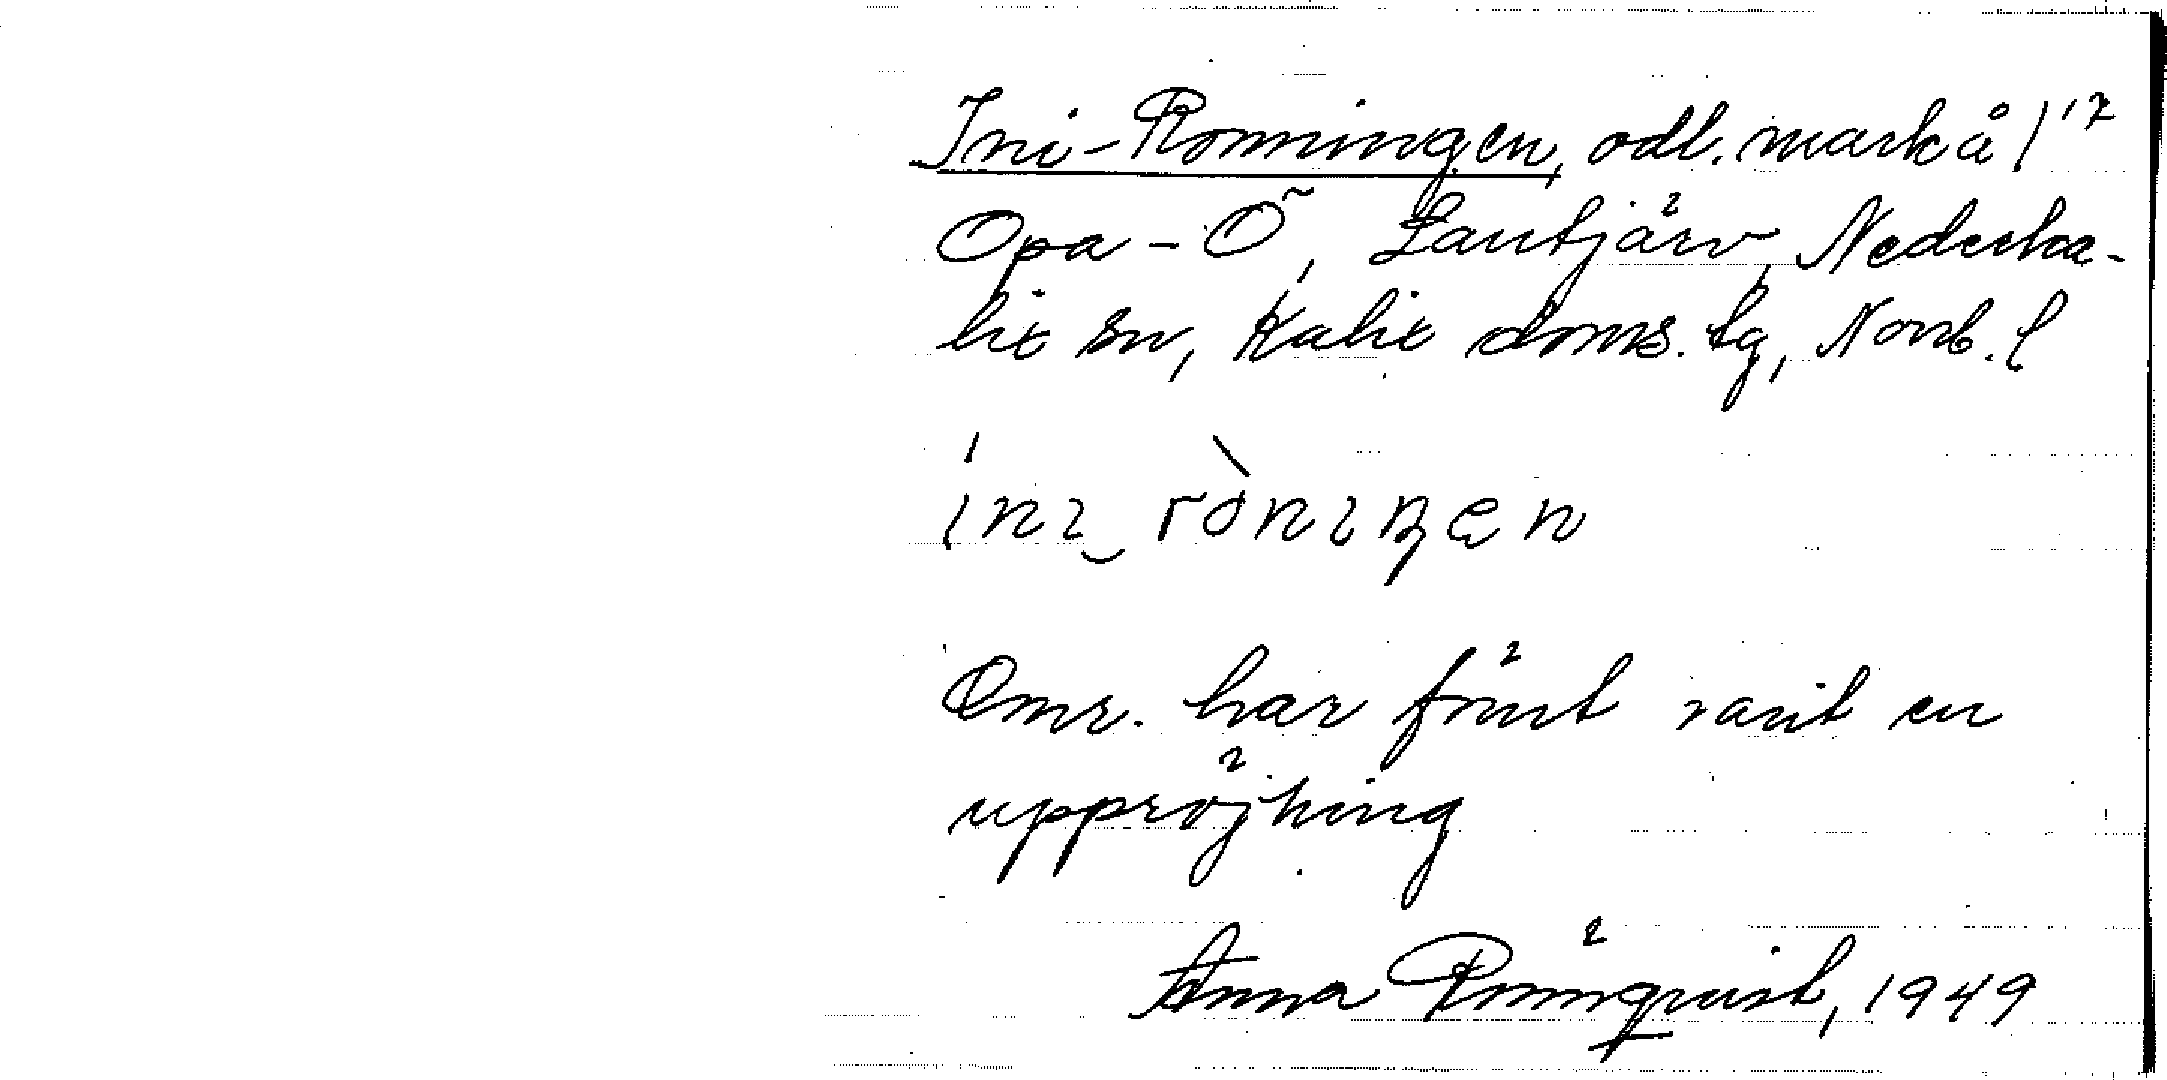 Ini-Ronningen, odl. mark å 1¹⁷
Opa-Ö, Lantjärv, Nederka-
lix sn, Kalix doms. lg, Norrb. l
ini ròniŋen
Omr. har förut varit en
uppröjning
Anna Rönnqvist, 1949